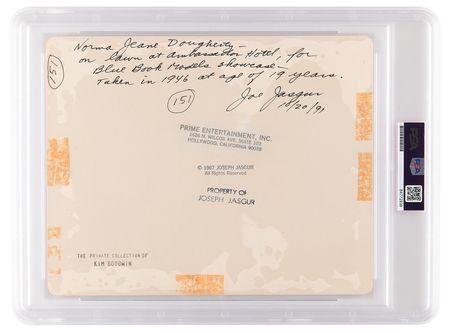 Norma Jeane Dougherty –
on lawn at Ambassador Hotel, for
Blue Book Models showcase –
Taken in 1946 at age of 19 years.
(151)
(151)
Joe Jasgur
10/20/91
PRIME ENTERTAINMENT, INC.
1626 N. WILCOX AVE. SUITE 103
HOLLYWOOD, CALIFORNIA 90028
© 1987 JOSEPH JASGUR
All Rights Reserved
PROPERTY OF
JOSEPH JASGUR
THE PRIVATE COLLECTION OF
KIM GOODWIN
PSA